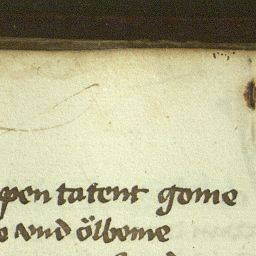 pen tatent gome
e vnd ölbome